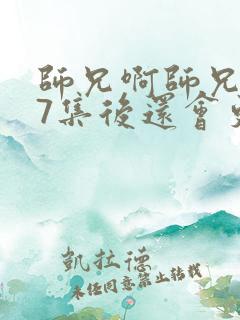 師兄啊師兄
7集後還會
凱拉德
未經同意禁止轉載